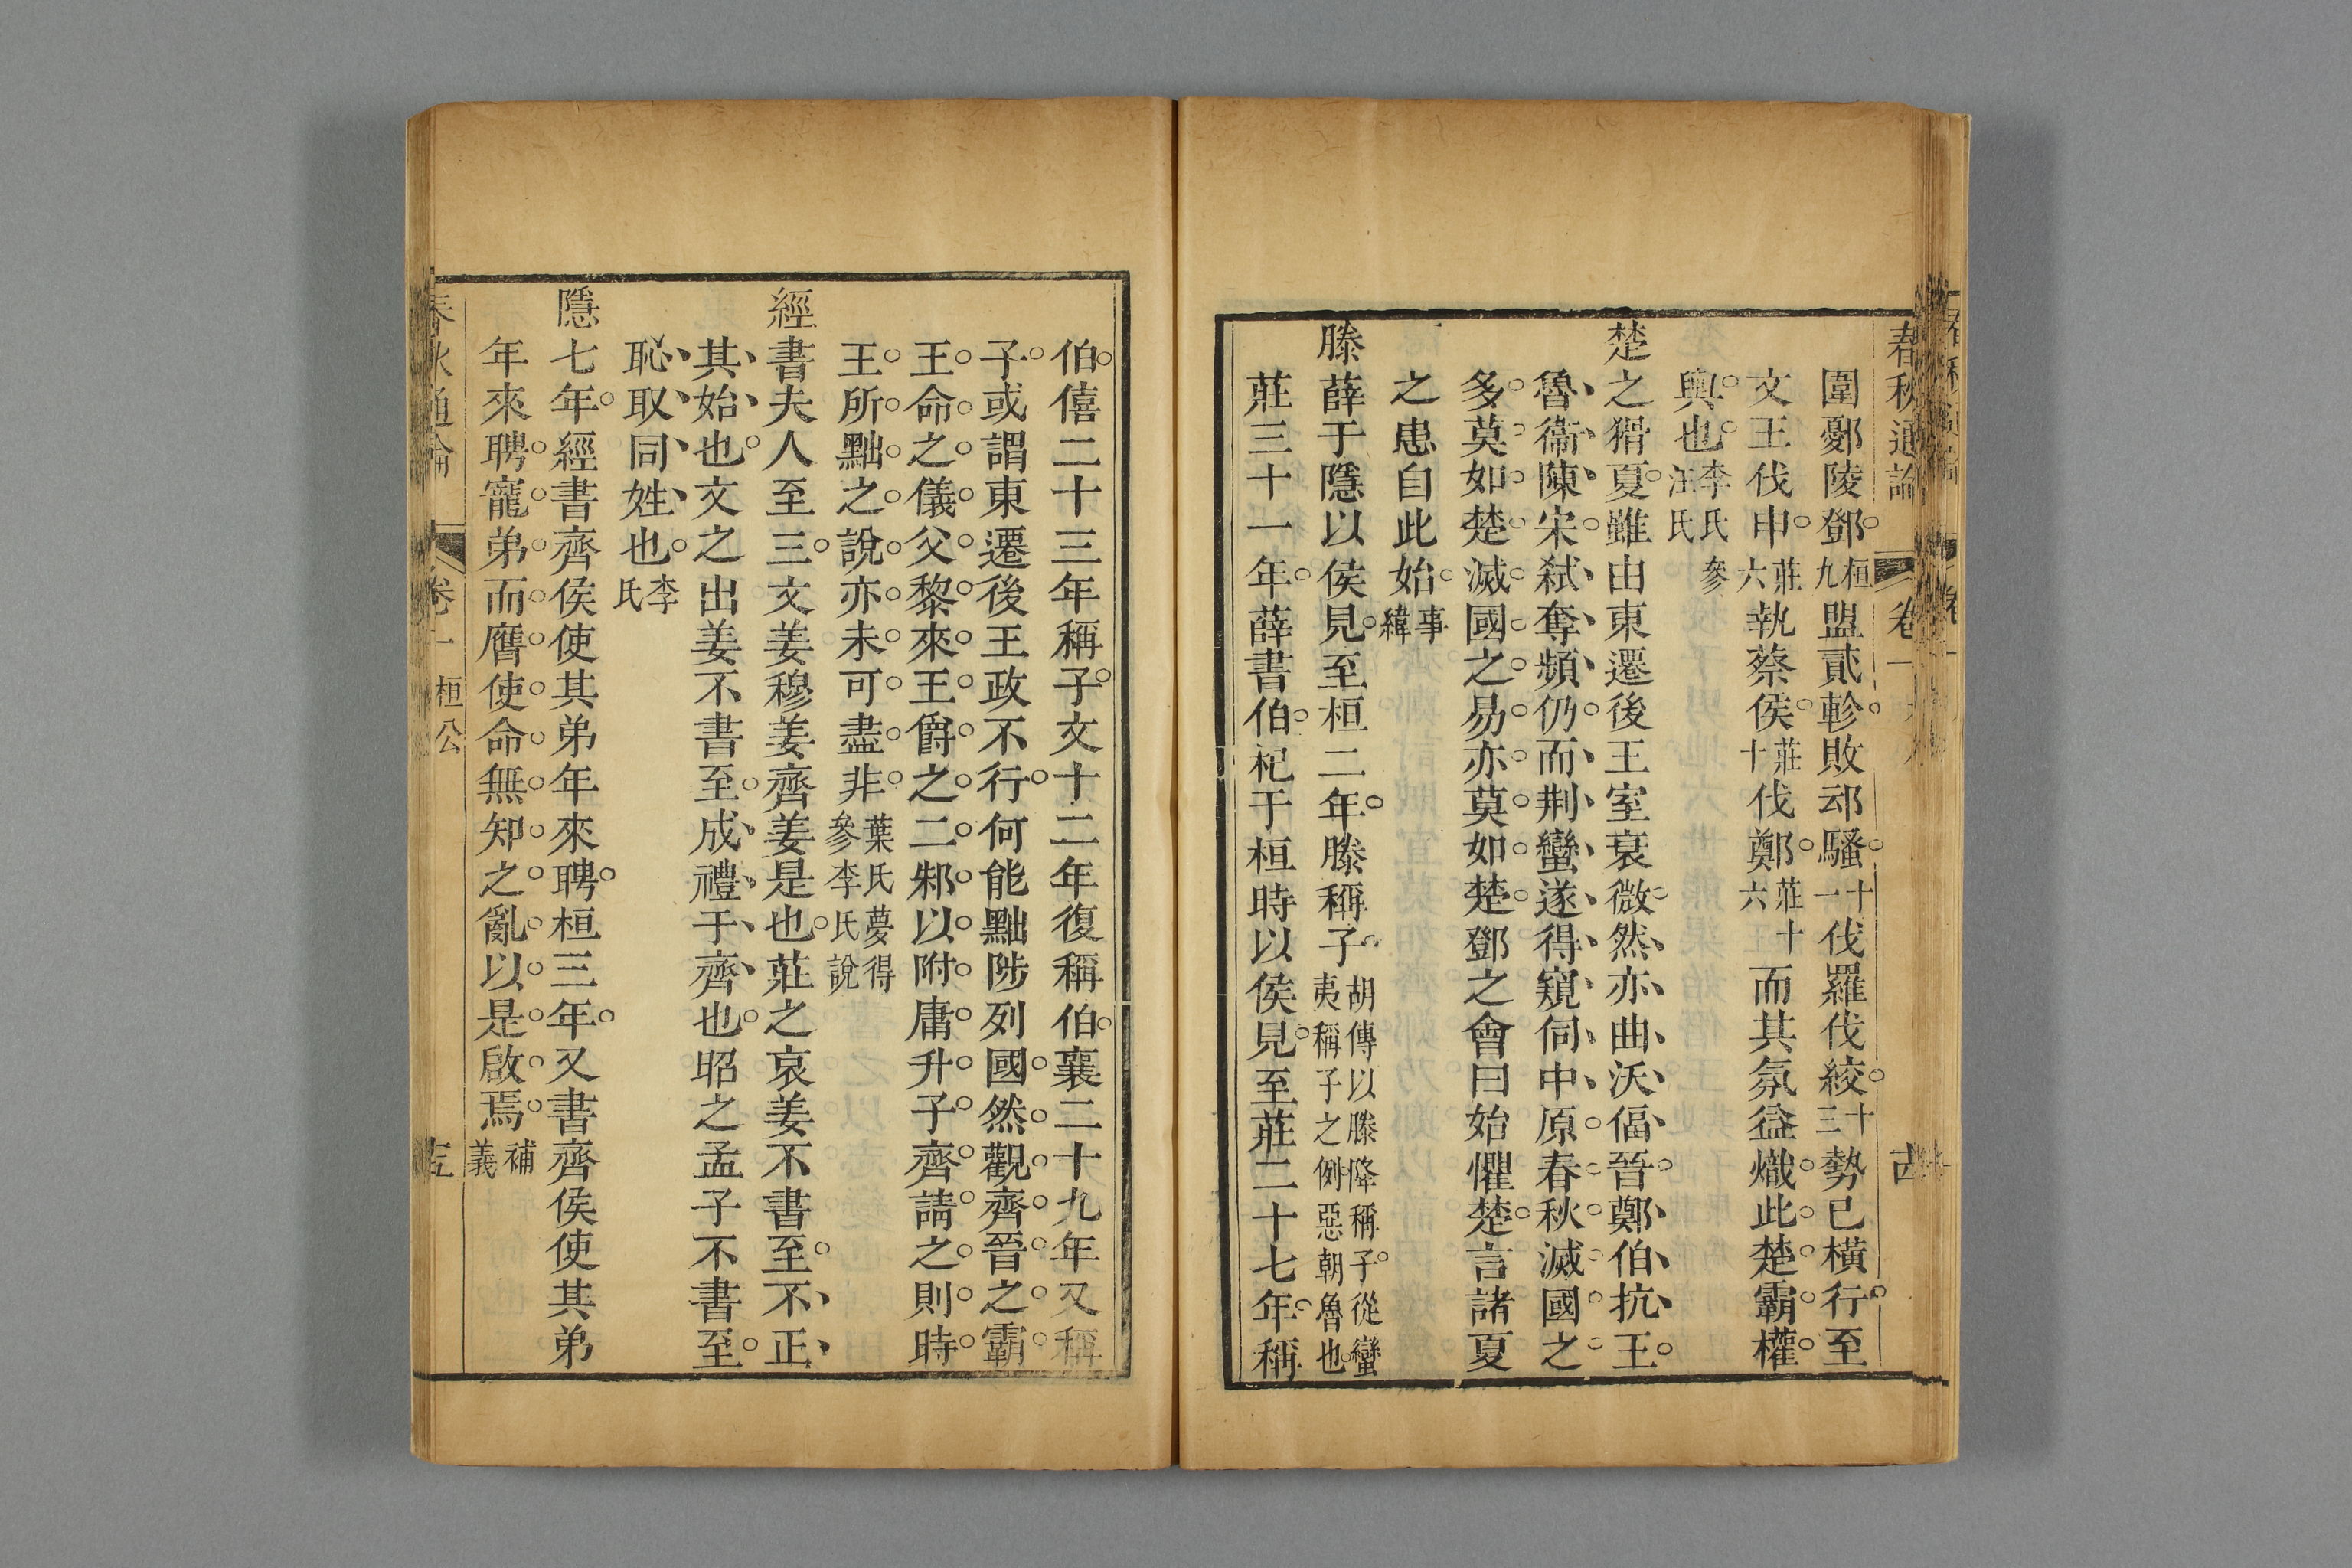 春秋通論 卷一
圍鄾陵鄧桓九盟貳軫敗䢵騷十一伐羅伐絞十三勢已橫行至
文王伐申莊六執蔡侯莊十伐鄭莊十六而其氛益熾此楚霸權
輿也李氏參汪氏
楚之猾夏雖由東遷後王室衰微然亦曲沃偪晉鄭伯抗王
魯衞陳宋弑奪頻仍而荆蠻遂得窺伺中原春秋滅國之
多莫如楚滅國之易亦莫如楚鄧之會曰始懼楚言諸夏
之患自此始事緯
滕薛于隱以侯見至桓二年滕稱子胡傳以滕降稱子從蠻夷稱子之例惡朝魯也
莊三十一年薛書伯杞于桓時以侯見至莊二十七年稱
伯僖二十三年稱子文十二年復稱伯襄二十九年又稱
子或謂東遷後王政不行何能黜陟列國然觀齊晉之霸
王命之儀父黎來王爵之二邾以附庸升子齊請之則時
王所黜之說亦未可盡非葉氏夢得參李氏說
經書夫人至三文姜穆姜齊姜是也莊之哀姜不書至不正
其始也文之出姜不書至成禮于齊也昭之孟子不書至
恥取同姓也李氏
隱七年經書齊侯使其弟年來聘桓三年又書齊侯使其弟
年來聘寵弟而膺使命無知之亂以是啟焉補義
春秋通論 卷一 桓公